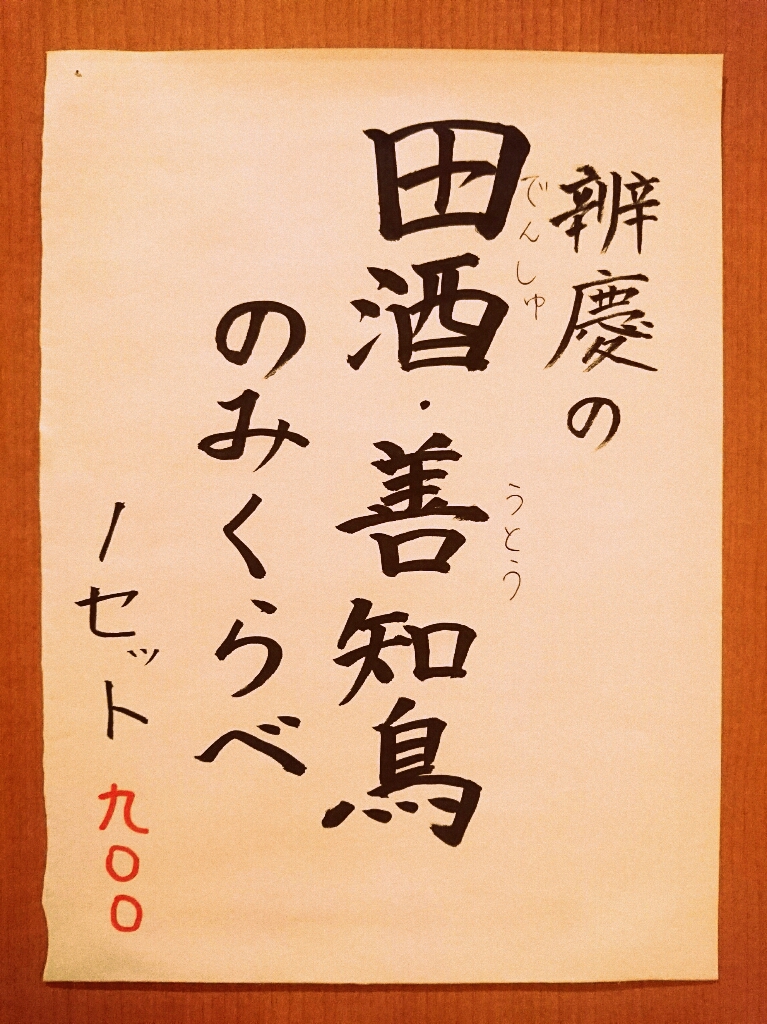 辨慶の
でんしゅ
田酒・善知鳥
うとう
のみくらべ
1セット 九〇〇